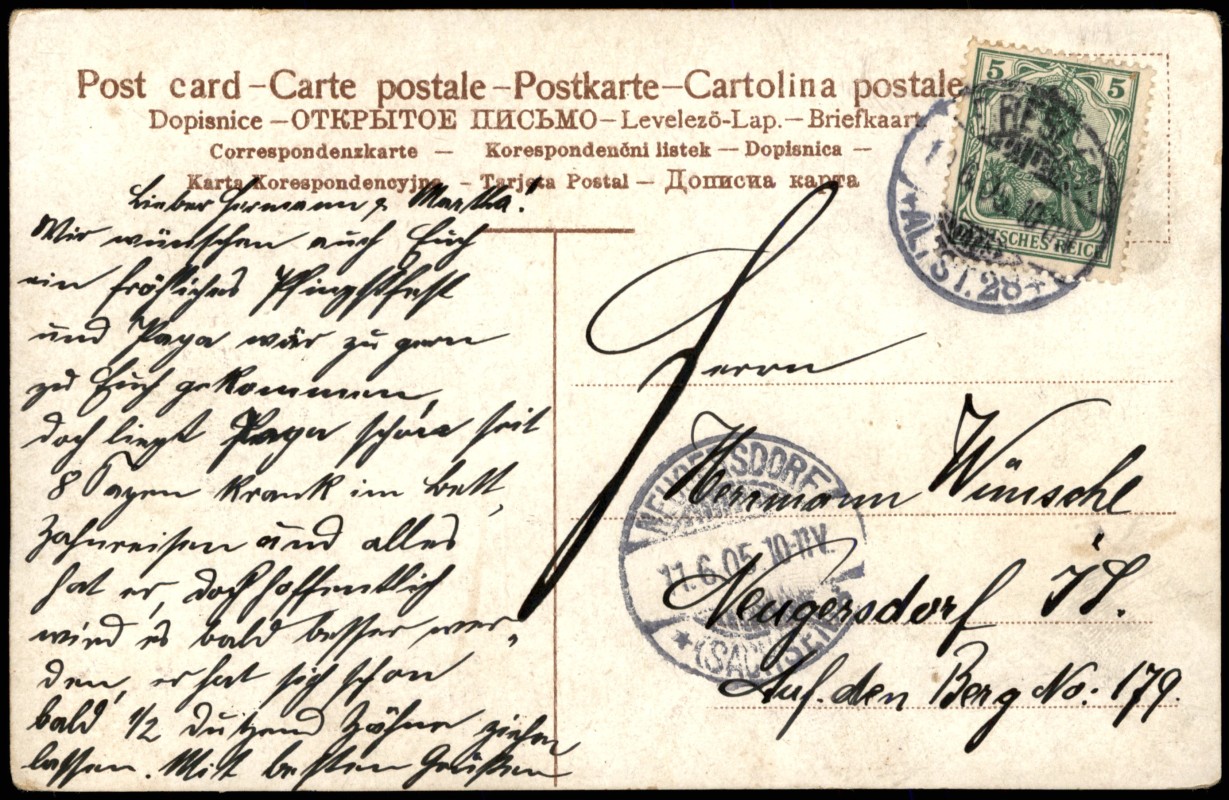 Post card – Carte postale – Postkarte – Cartolina postale
Dopisnice – ОТКРЫТОЕ ПИСЬМО – Levelezõ-Lap. – Briefkaart
Correspondenzkarte – Korespondenčni listek – Dopisnica –
Karta Korespondencyjna – Tarjeta Postal – Дописна карта
Lieber Hermann & Martha!
Wir wünschen auch Euch
ein fröhliches Pfingstfest
und Papa wär zu gern
zu Euch gekommen,
doch liegt Papa schon seit
8 Tagen krank im Bett,
Zahnreißen und alles
hat er, doch hoffentlich
wird es bald besser wer-
den, er hat sich schon
bald 1/2 Dutzend Zähne ziehen
lassen. Mit besten Grüßen
5 5
DEUTSCHES REICH
ALTST. 28
Herrn
Herrmann Wünsche
Neugersdorf i/S.
Auf den Berg No. 179.
NEUGERSDORF
11.6.05.10-11V.
(SACHSEN)